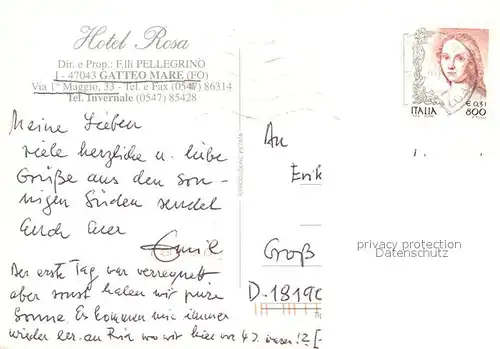 Hotel Rosa
Dir. e Prop.: F.lli PELLEGRINO
I - 47043 GATTEO MARE (FO)
Via 1° Maggio, 33 - Tel. e Fax (0547) 86314
Tel. Invernale (0547) 85428
Meine Lieben
viele herzliche u. liebe
Grüße aus den son-
nigen Süden sendet
Euch Euer
Emil
Der erste Tag war verregnet
aber sonst haben wir pure
Sonne. Es kommen mir immer
wieder wo wir hier vor 4 J. waren!
RIPRODUZIONE VIETATA
€ 0,41
ITALIA 800
An
Erik
Groß
D-1819
privacy protection
Datenschutz